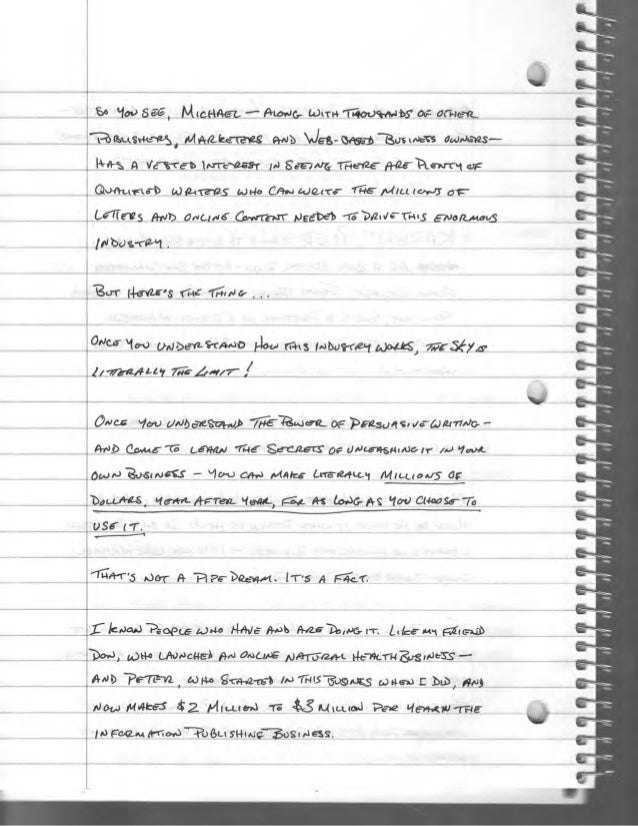 So you see, Michael — along with thousands of other
publishers, marketers and web-based business owners —
has a vested interest in seeing there are plenty of
qualified writers who can write the millions of
letters and online content needed to drive this enormous
industry.
But here's the thing ...
Once you understand how this industry works, the sky is
litterally the limit!
Once you understand the power of persuasive writing —
and come to learn the secrets of unleashing it in your
own business — you can make literally millions of
dollars, year after year, for as long as you choose to
use it.
That's not a pipe dream. It's a fact.
I know people who have and are doing it. Like my friend
Don, who launched an online natural health business —
and Peter, who started in this busines when I did, and
now makes $2 million to $3 million per year in the
information publishing business.